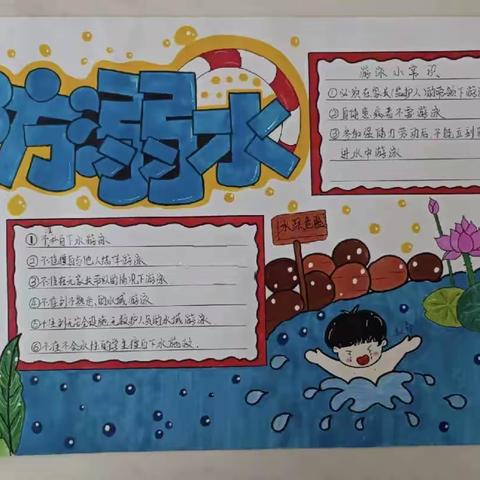 防溺水
游泳小常识
①必须在家长(监护人)的带领下游泳
②身体患病者不要游泳
③参加强体力劳动后,不能立到
进水中游泳
水深危险
①不私自下水游泳
②不擅自与他人结伴游泳
③不在无家长带队的情况下游泳
④不在到不熟悉的水域游泳
⑤不到无安全设施、无救护人员的水域游泳
⑥不在不会水性的学生擅自下水施救.